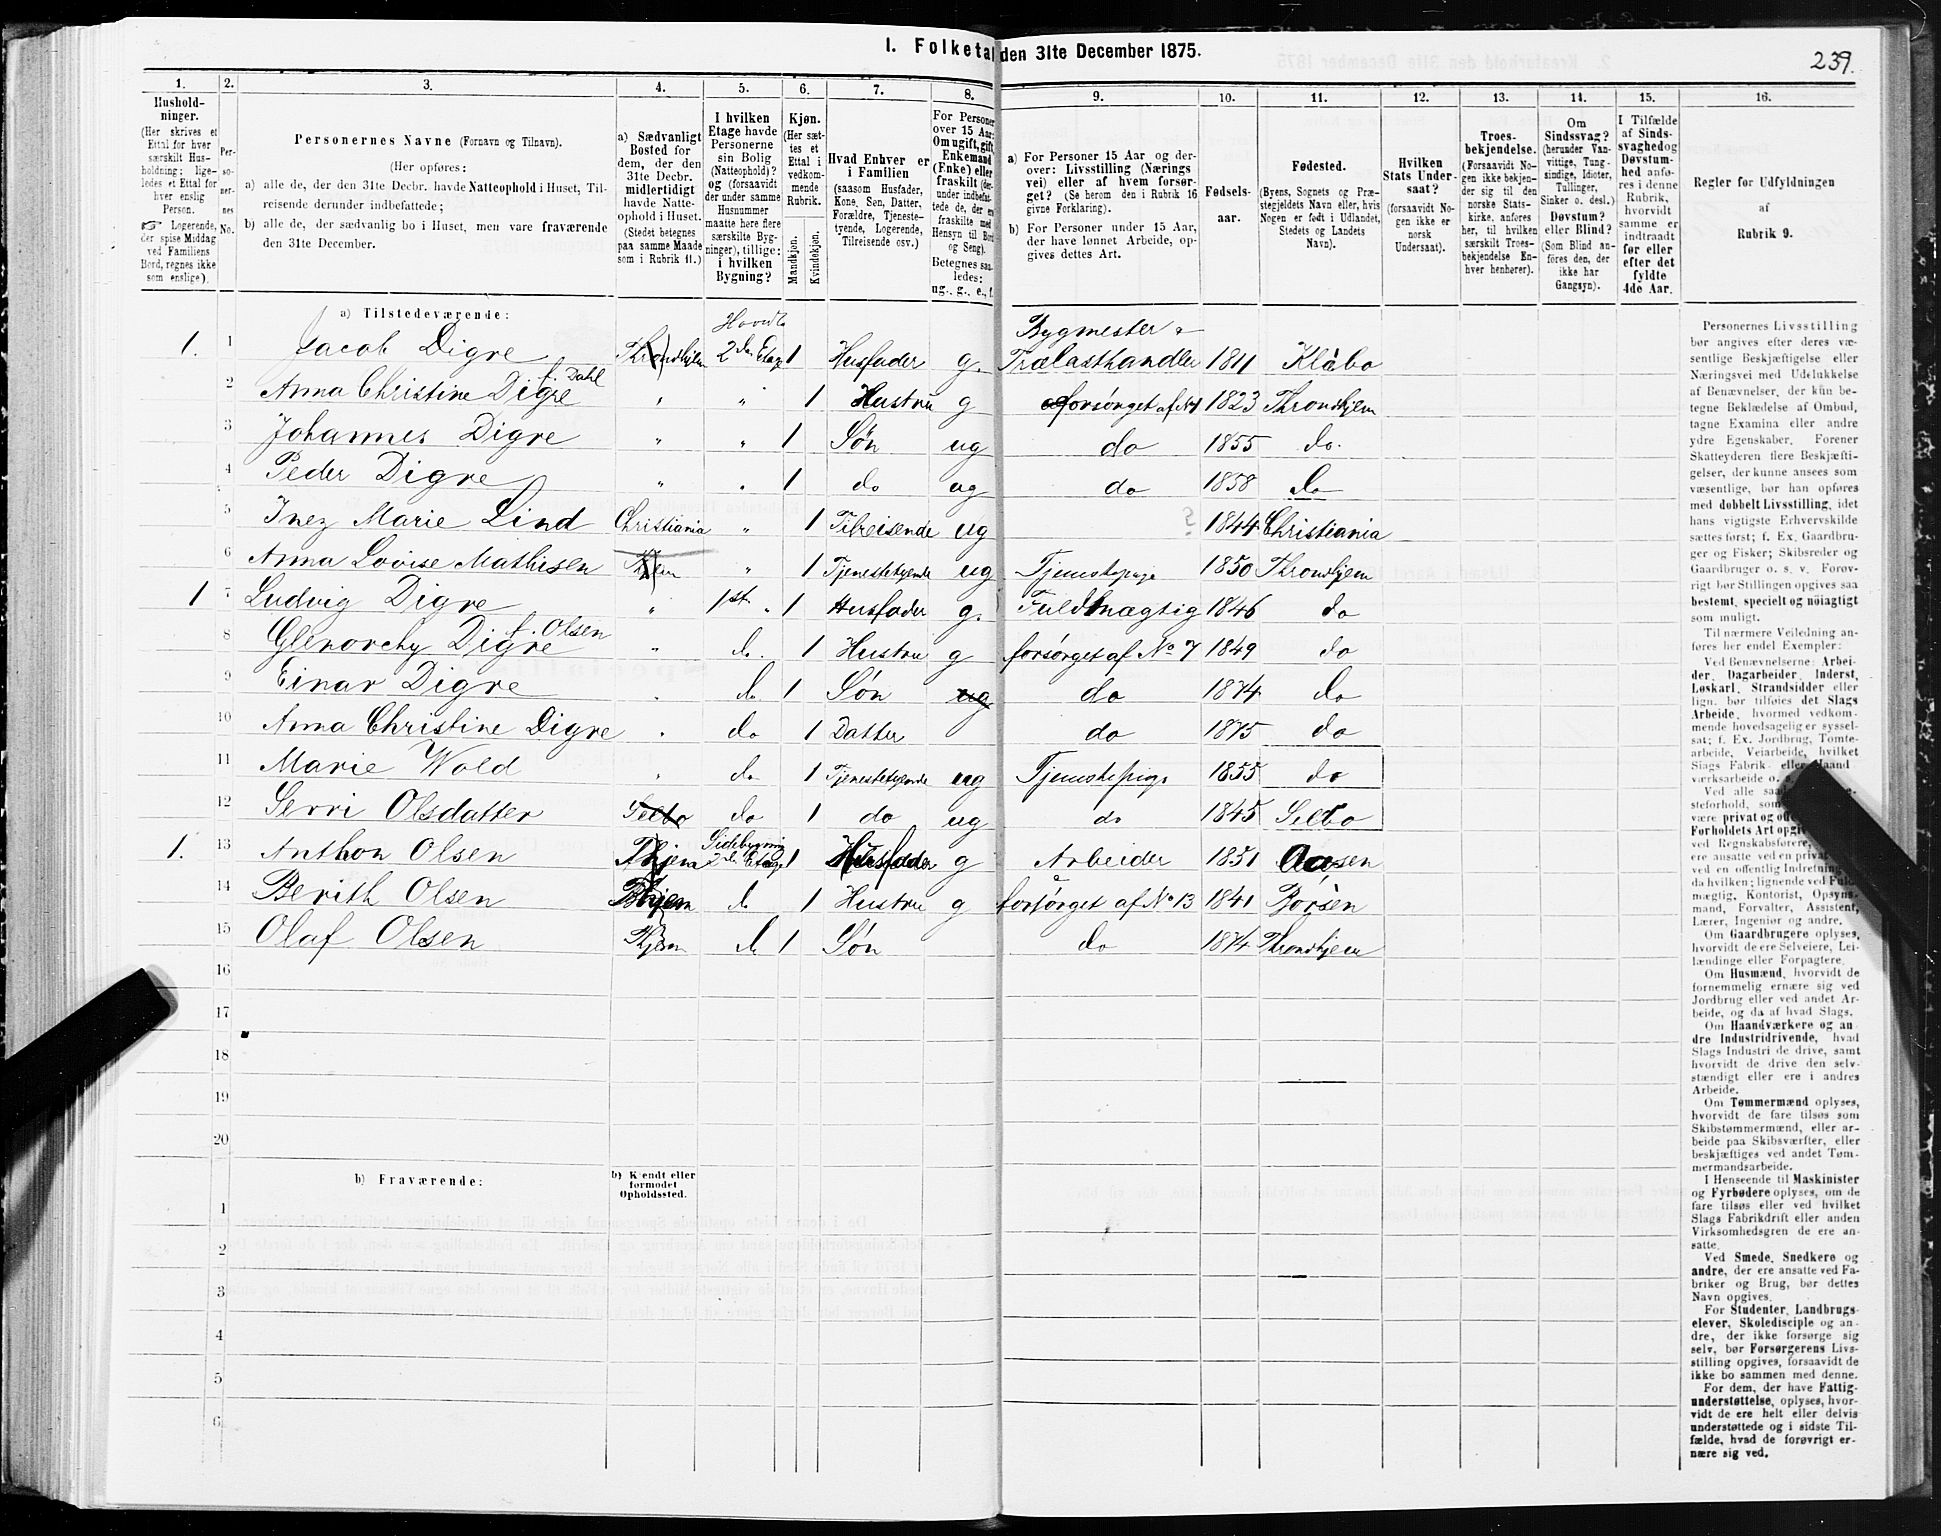 I. Folketal den 31te December 1875.
239.
1. 2. 3. 4. 5. 6. 7. 8. 9. 10. 11. 12. 13. 14. 15. 16.
Hushold-
ninger.
(Her skrives et
Ettal for hver
særskilt Hus-
holdning; lige-
ledes et Ettal for
hver enslig
Person.
☞ Logerende,
der spise Middag
ved Familiens
Bord, regnes ikke
som enslige).
Per-
so-
ner-
nes
No.
Personernes Navne (Fornavn og Tilnavn).
(Her opføres:
a) alle de, der den 31te Decbr. havde Natteophold i Huset, Til-
reisende derunder indbefattede;
b) alle de, der sædvanlig bo i Huset, men vare fraværende
den 31te December.
a) Sædvanligt
Bosted for
dem, der den
31te Decbr.
midlertidigt
havde Natte-
ophold i Huset.
(Stedet betegnes
paa samme Maade
som i Rubrik 11.)
I hvilken
Etage havde
Personerne
sin Bolig
(Natteophold)?
og (forsaavidt
der under samme
Husnummer
maatte høre flere
særskilte Byg-
ninger), tillige:
i hvilken
Bygning?
Kjøn.
(Her sæt-
tes et
Ettal i
vedkom-
mende
Rubrik.
Mandkjøn.
Kvindekjøn.
Hvad Enhver er
i Familien
(saasom Husfader,
Kone, Søn, Datter,
Forældre, Tjeneste-
tyende, Logerende,
Tilreisende osv.)
For Personer
over 15 Aar:
Om ugift, gift,
Enkemand
(Enke) eller
fraskilt (der-
under indbefat-
tede de, der ere
fraskilte med
Hensyn til Bord
og Seng).
Betegnes saa-
ledes:
ug., g., e., f.
a) For Personer 15 Aar og der-
over: Livsstilling (Nærings
vei) eller af hvem forsør-
get? (Se herom den i Rubrik 16
givne Forklaring).
b) For Personer under 15 Aar,
der have lønnet Arbeide, op-
gives dettes Art.
Fødsels-
aar.
Fødested.
(Byens, Sognets og Præ-
stegjeldets Navn eller, hvis
Nogen er født i Udlandet,
Stedets og Landets
Navn).
Hvilken
Stats Under-
saat?
(forsaavidt No-
gen ikke er
norsk
Undersaat).
Troes-
bekjendelse.
(Forsaavidt No-
gen ikke bekjen-
der sig til den
norske Stats-
kirke, anføres
her, til hvilken
særskilt Troes-
bekjendelse En-
hver henhører).
Om
Sindssvag?
(herunder Van-
vittige, Tung-
sindige, Idioter,
Tullinger,
Sinker o. desl.)
Døvstum?
eller Blind?
(Som Blind an-
føres den, der
ikke har
Gangsyn).
I Tilfælde
af Sinds-
svaghed og
Døvstum-
hed anfø-
res i denne
Rubrik,
hvorvidt
samme er
indtraadt
før eller
efter det
fyldte
4de Aar.
Regler for Udfyldningen
af
Rubrik 9.
a) Tilstedeværende:
1. 1 Jacob Digre Throndhjem Hovedb 2den Etage 1 Husfader g. Bygmester & Trælasthandler 1811 Klæbo
2 Anna Christine Digre f. Dahl " " 1 Hustru g forsørget af No 1 1823 Throndhjem
3 Johannes Digre " " 1 Søn ug do 1855 do.
4 Peder Digre " " 1 do ug do 1858 do
5 Inez Marie Lind Christiania " 1 Tilreisende ug ? 1844 Christiania
6 Anna Lovise Mathisen Thjem " 1 Tjenestetyende ug Tjenestepige 1850 Throndhjem
1 7 Ludvig Digre " 1st. " 1 Husfader g. Fuldmægtig 1846 do
8 Glenorchy Digre f. Olsen " do. 1 Hustru g forsørget af No 7 1849 do
9 Einar Digre " do 1 Søn ug do 1874 do
10 Anna Christine Digre " do 1 Datter do 1875 do
11 Marie Wold " do 1 Tjenestetyende ug Tjenestepige 1855 do
12 Serri Olsdatter Selbo do 1 do ug do 1845 Selbo
1. 13 Anthon Olsen Thjem Sidebygning 2den Etage 1 Husfader g Arbeider 1851 Aasen
14 Berith Olsen Thjem do 1 Hustru g forsørget af No 13 1841 Børsen
15 Olaf Olsen Thjem do 1 Søn do 1874 Throndhjem
16
17
18
19
20
b) Fraværende:
b) Kjendt eller
formodet
Opholdssted.
1
2
3
4
5
6
Personernes Livsstilling
bør angives efter deres væ-
sentlige Beskjæftigelse eller
Næringsvei med Udelukkelse
af Benævnelser, der kun be-
tegne Beklædelse af Ombud,
tagne Examina eller andre
ydre Egenskaber. Forener
Skatteyderen flere Beskjæfti-
gelser, der kunne ansees som
væsentlige, bør han opføres
med dobbelt Livsstilling, idet
hans vigtigste Erhvervskilde
sættes først; f. Ex. Gaardbru-
ger og Fisker; Skibsreder og
Gaardbruger o. s. v. Forøv-
rigt bør Stillingen opgives saa
bestemt, specielt og nöiagtigt
som muligt.
Til nærmere Veiledning an-
føres her endel Exempler:
Ved Benævnelserne: Arbei-
der, Dagarbeider, Inderst,
Løskarl, Strandsidder eller
lign. bør tilføies det Slags
Arbeide, hvormed vedkom-
mende hovedsagelig er syssel-
sat; f. Ex. Jordbrug, Tomte-
arbeide, Veiarbeide, hvilket
Slags Fabrik- eller Haand-
værksarbeide o. s.
Ved alle
steforhold, som
være privat og
Forholdets Art opgiv
ved Regnskabsførere,
ere ansatte ved en privat
ved en offentlig Indretning
da hvilken; lignende ved Fuld-
mægtig, Kontorist, Opsyns-
mand, Forvalter, Assistent,
Lærer, Ingeniør og andre.
Om Gaardbrugere oplyses,
hvorvidt de ere Selveiere, Lei-
lændinge eller Forpagtere.
Om Husmænd, hvorvidt de
fornemmelig ernære sig ved
Jordbrug eller ved andet Ar-
beide, og da af hvad Slags.
Om Haandværkere og an
dre Industridrivende, hvad
Slags Industri de drive, samt
hvorvidt de drive den selv-
stændigt eller ere i andres
Arbeide.
Om Tømmermænd oplyses,
hvorvidt de fare tilsøs som
Skibstømmermænd, eller ar-
beide paa Skibsværfter, eller
beskjæftiges ved andet Tøm-
mermandsarbeide.
I Henseende til Maskinister
og Fyrbødere oplyses, om de
fare tilsøs eller ved hvilket
Slags Fabrikdrift eller anden
Virksomhedsgren de ere an-
satte.
Ved Smede, Snedkere og
andre, der ere ansatte ved Fa-
briker og Brug, bør dettes
Navn opgives.
For Studenter, Landbrugs-
elever, Skoledisciple og an-
dre, der ikke forsørge sig
selv, bør Forsørgerens Livs-
stilling opgives, forsaavidt de
ikke bo sammen med denne.
For dem, der have Fattig-
understøttelse, oplyses, hvor-
vidt de ere helt eller delvis
understøttede og i sidste Til-
fælde, hvad de forøvrigt er-
nære sig ved.